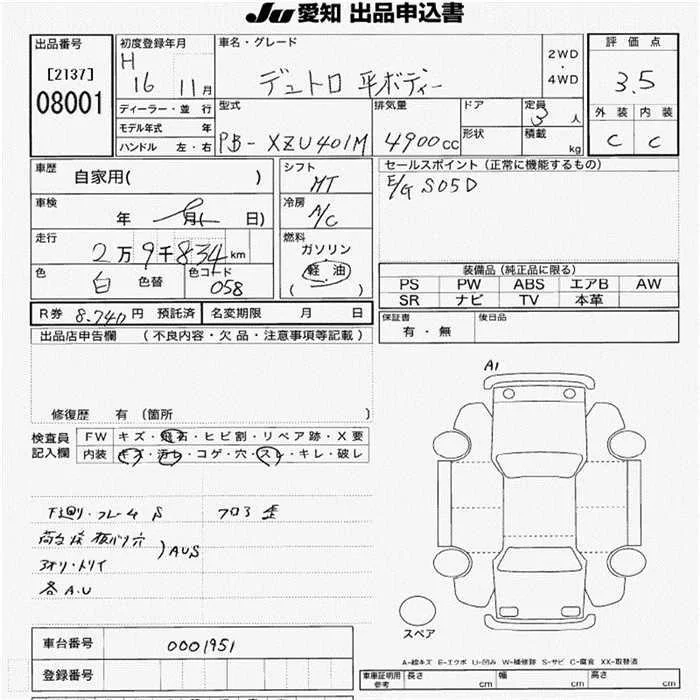 JU 愛知 出品申込書
出品番号
[2137]
08001
初度登録年月
H
16 11月
車名・グレード
デュトロ 平ボディー
2WD
・
4WD
評価点
3.5
外装 内装
C C
ディーラー・並 行
モデル年式 年
ハンドル 左・右
型式
PB-XZU401M
排気量
4900cc
ドア
形状
定員
3 人
積載
kg
車歴
自家用( )
車検
年 月( 日)
走行
2万9千834km
色
白
色替
色コード
058
シフト
MT
冷房
A/C
燃料
ガソリン
軽 油
( )
セールスポイント(正常に機能するもの)
E/G S05D
装備品(純正品に限る)
PS PW ABS エアB AW
SR ナビ TV 本革
R券 8.740円 預託済
名変期限 月 日
保証書
有・無
後日品
出品店申告欄 (不良内容・欠品・注意事項等記載)
修復歴 有(箇所 )
検査員
記入欄
FW キズ・飛石・ヒビ割・リペア跡・X要
内装 キズ・汚レ・コゲ・穴・スレ・キレ・破レ
A1
下廻り・フレーム S
フロア 歪
アオリ・トリイ
)AUS
各A.U
スペア
車台番号
0001951
登録番号
A-線キズ E-エクボ U-凹み W-補修跡 S-サビ C-腐食 XX-取替済
車庫証明用
参考
長さ cm
幅 cm
高さ cm